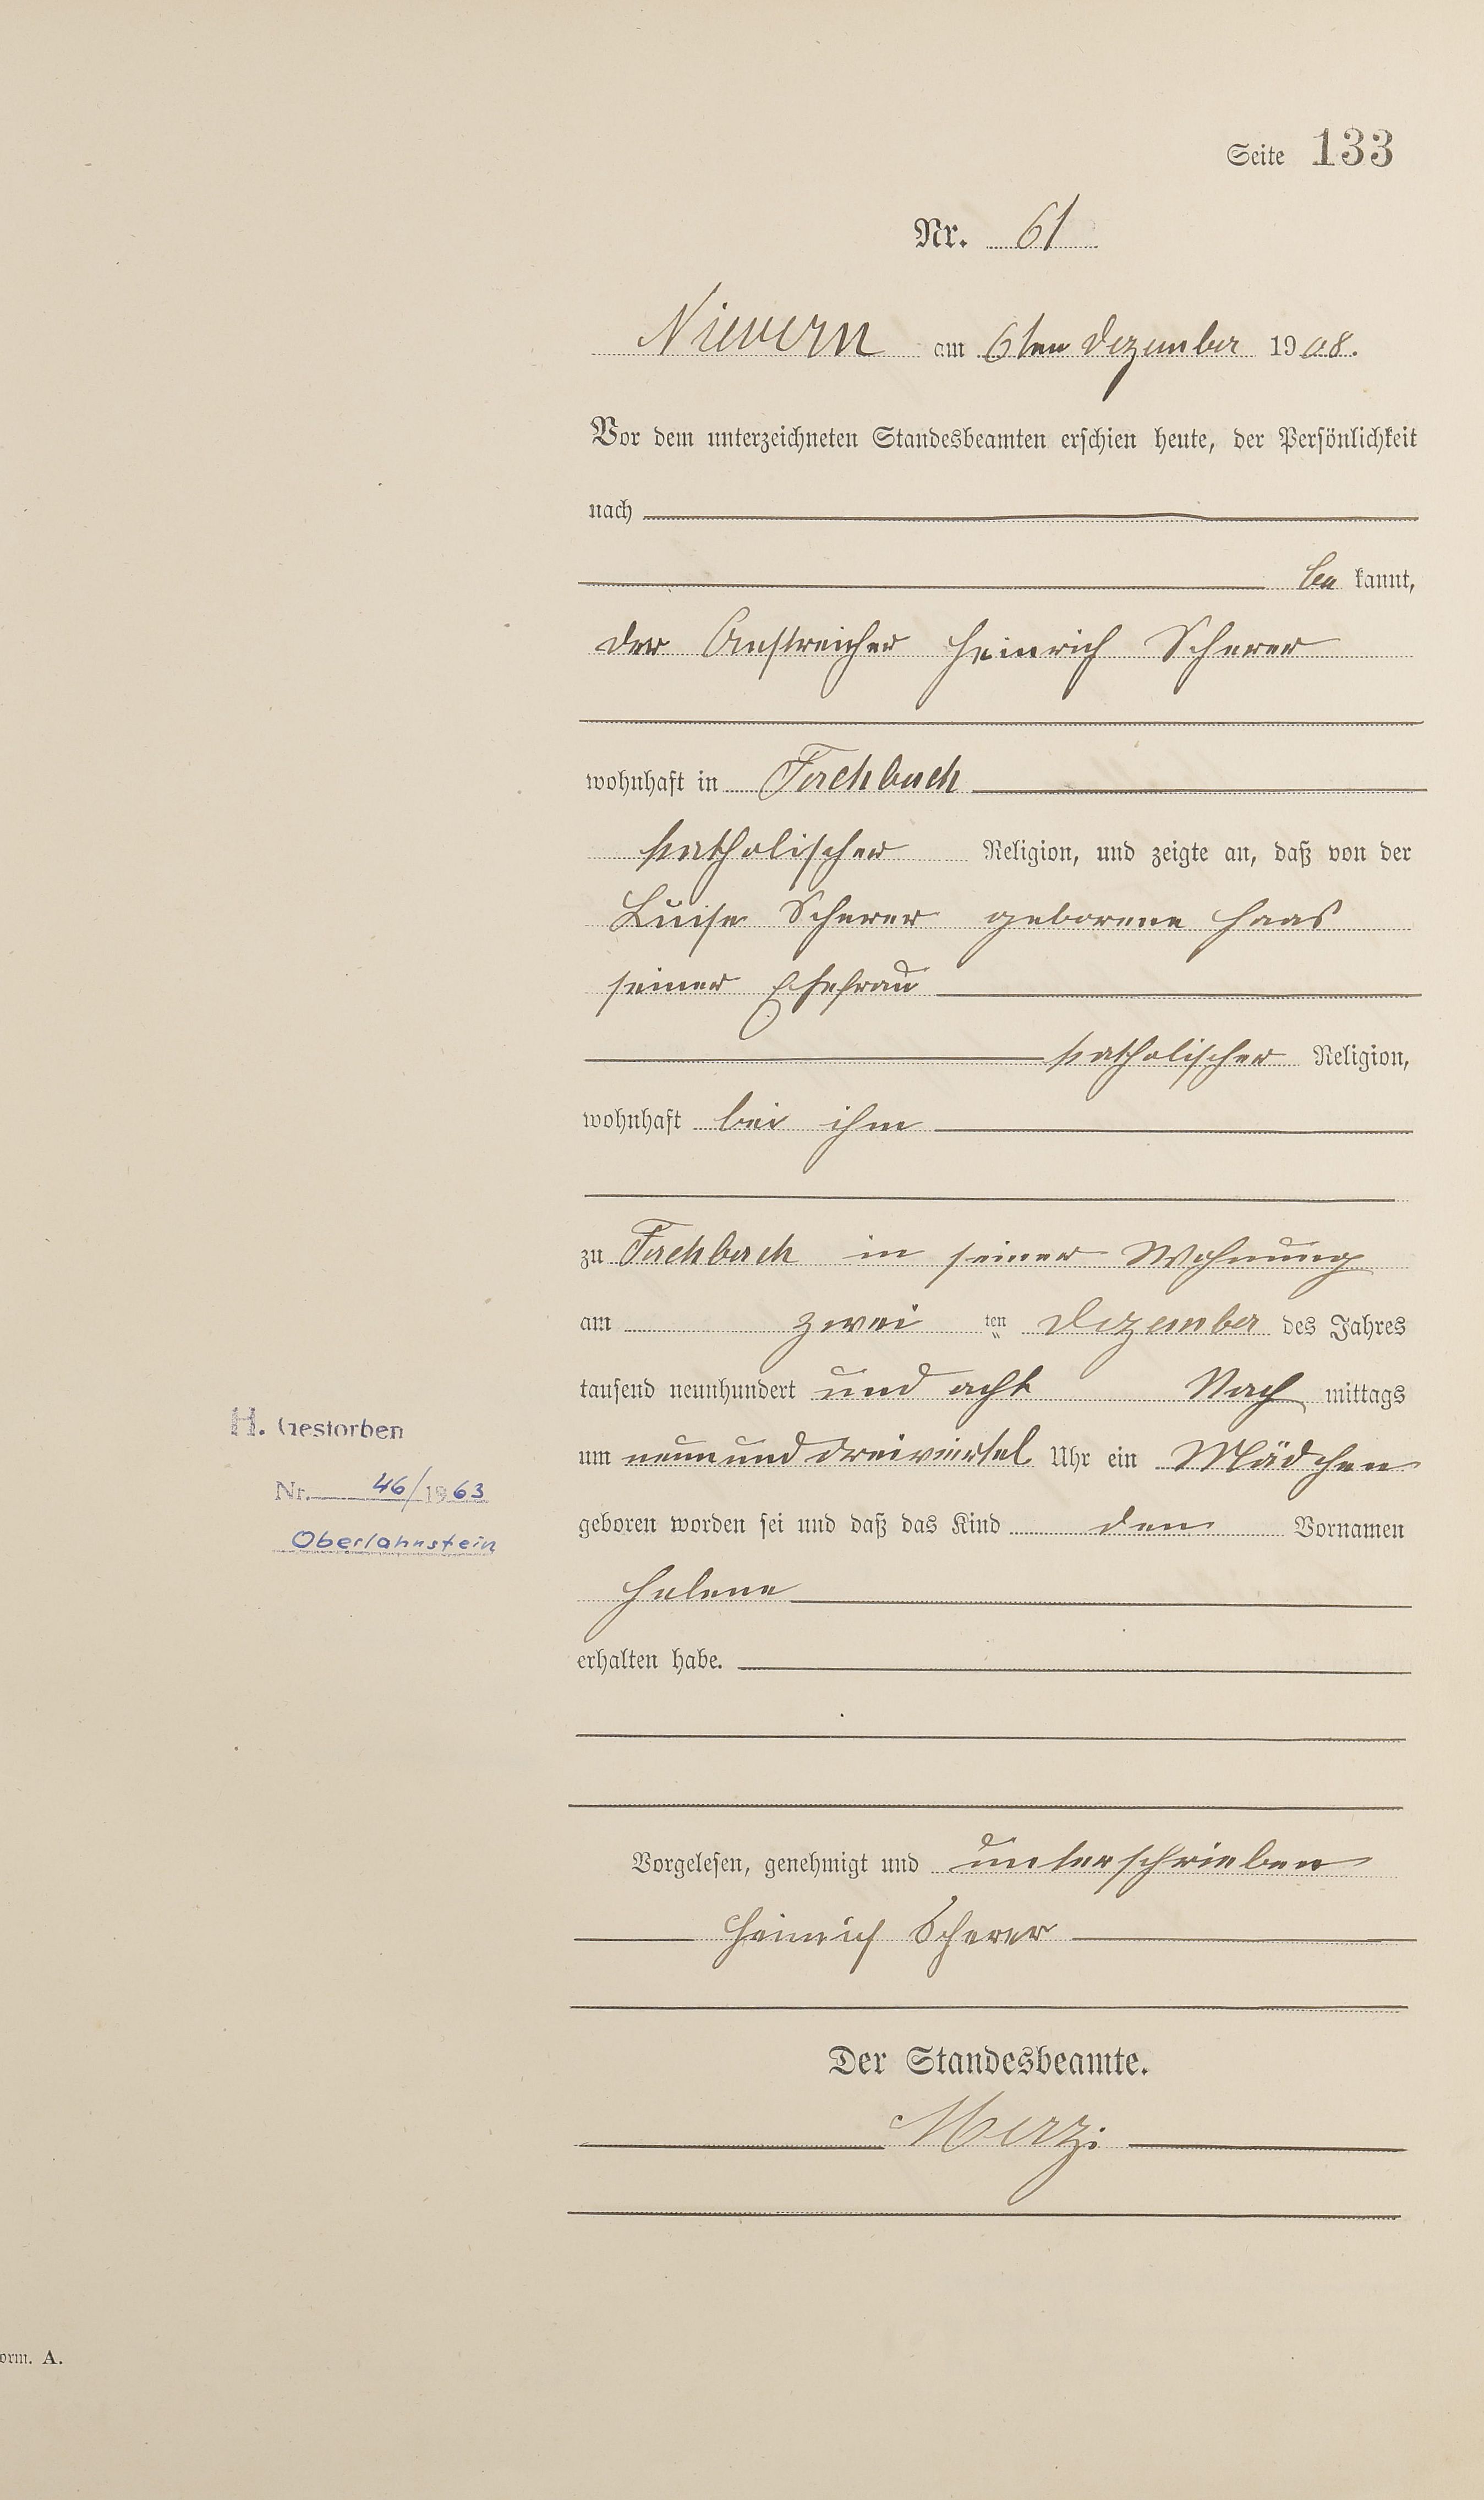 Seite 133
Nr. 61
Nievern am 6ten Dezember 1908.
Vor dem unterzeichneten Standesbeamten erschien heute, der Persönlichkeit
nach
be kannt,
der Anstreicher Heinrich Scherer
wohnhaft in Fachbach
katholischer Religion, und zeigte an, daß von der
Luise Scherer geborene Haas
seiner Ehefrau
katholischer Religion,
wohnhaft bei ihm
zu Fachbach in seiner Wohnung
am zwei ten Dezember des Jahres
tausend neunhundert und acht Nach mittags
um neun und dreiviertel Uhr ein Mädchen
geboren worden sei und daß das Kind den Vornamen
Helene
erhalten habe.
Vorgelesen, genehmigt und unterschrieben
Heinrich Scherer
Der Standesbeamte.
Merz.
H. Gestorben
Nr. 46/1963
Oberlahnstein
orm. A.